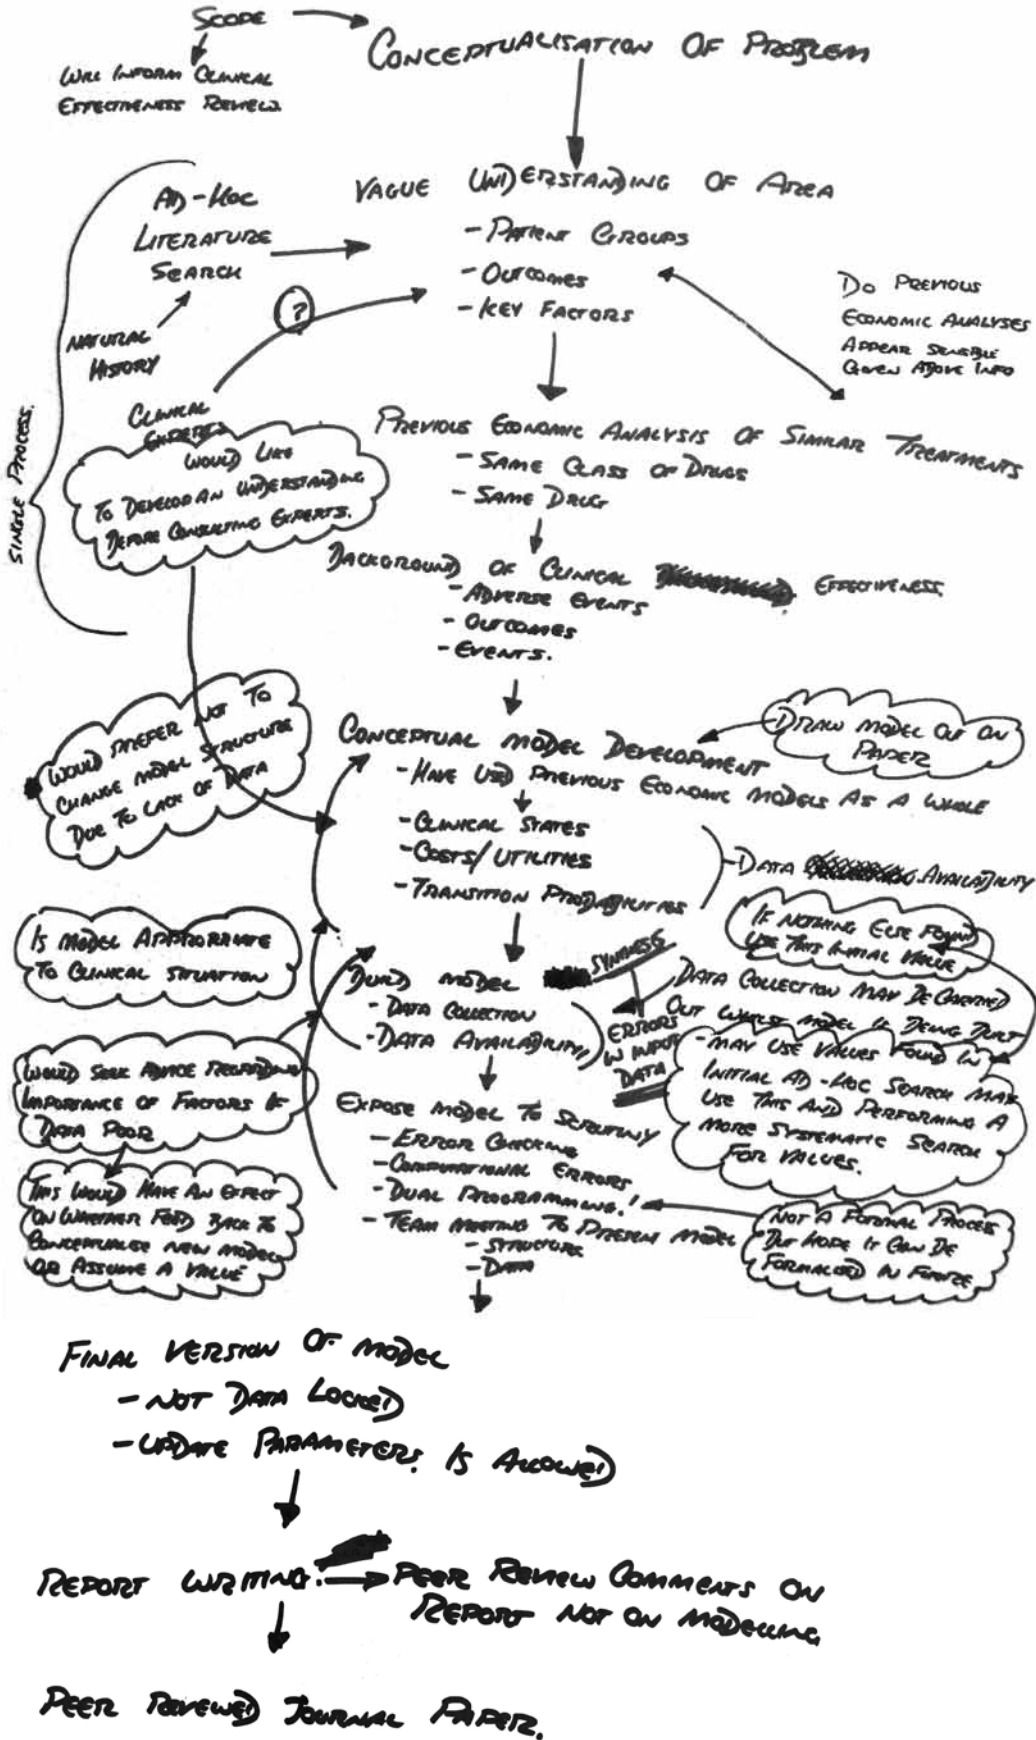 SCOPE
CONCEPTUALISATION OF PROBLEM
WILL INFORM CLINICAL
EFFECTIVENESS REVIEW.
AD-HOC
LITERATURE
SEARCH
NATURAL
HISTORY
SINGLE PROCESS.
VAGUE UNDERSTANDING OF AREA
- PATIENT GROUPS
- OUTCOMES
- KEY FACTORS
?
DO PREVIOUS
ECONOMIC ANALYSES
APPEAR SENSIBLE
GIVEN ABOVE INFO
CLINICAL
EXPERTS
WOULD LIKE
TO DEVELOP AN UNDERSTANDING
BEFORE CONSULTING EXPERTS.
PREVIOUS ECONOMIC ANALYSIS OF SIMILAR TREATMENTS
- SAME CLASS OF DRUGS
- SAME DRUG
BACKGROUND OF CLINICAL EFFECTIVENESS
- ADVERSE EVENTS
- OUTCOMES
- EVENTS.
WOULD PREFER NOT TO
CHANGE MODEL STRUCTURE
DUE TO LACK OF DATA
CONCEPTUAL MODEL DEVELOPMENT
- HAVE USED PREVIOUS ECONOMIC MODELS AS A WHOLE
DRAW MODEL OUT ON
PAPER
- CLINICAL STATES
- COSTS/UTILITIES
- TRANSITION PROBABILITIES
- DATA AVAILABILITY
IS MODEL APPROPRIATE
TO CLINICAL SITUATION
IF NOTHING ELSE FOUND
USE THIS INITIAL VALUE
BUILD MODEL
- DATA COLLECTION
- DATA AVAILABILITY
SYNTHESIS
ERRORS
IN INPUT
DATA
DATA COLLECTION MAY BE CARRIED
OUT WHILST MODEL IS BEING BUILT
- MAY USE VALUES FOUND IN
INITIAL AD-HOC SEARCH MAY
USE THIS AND PERFORMING A
MORE SYSTEMATIC SEARCH
FOR VALUES.
WOULD SEEK ADVICE REGARDING
IMPORTANCE OF FACTORS IF
DATA POOR
THIS WOULD HAVE AN EFFECT
ON WHETHER FEED BACK TO
CONCEPTUALISE NEW MODEL
OR ASSUME A VALUE
EXPOSE MODEL TO SCRUTINY
- ERROR CHECKING
- COMPUTATIONAL ERRORS
- DUAL PROGRAMMING!
- TEAM MEETING TO PRESENT MODEL
- STRUCTURE
- DATA
NOT A FORMAL PROCESS
BUT HOPE IT CAN BE
FORMALISED IN FUTURE
FINAL VERSION OF MODEL
- NOT DATA LOCKED
- UPDATE PARAMETERS. IS ALLOWED
REPORT WRITING.
PEER REVIEW COMMENTS ON
REPORT NOT ON MODELLING
PEER REVIEWED JOURNAL PAPER.